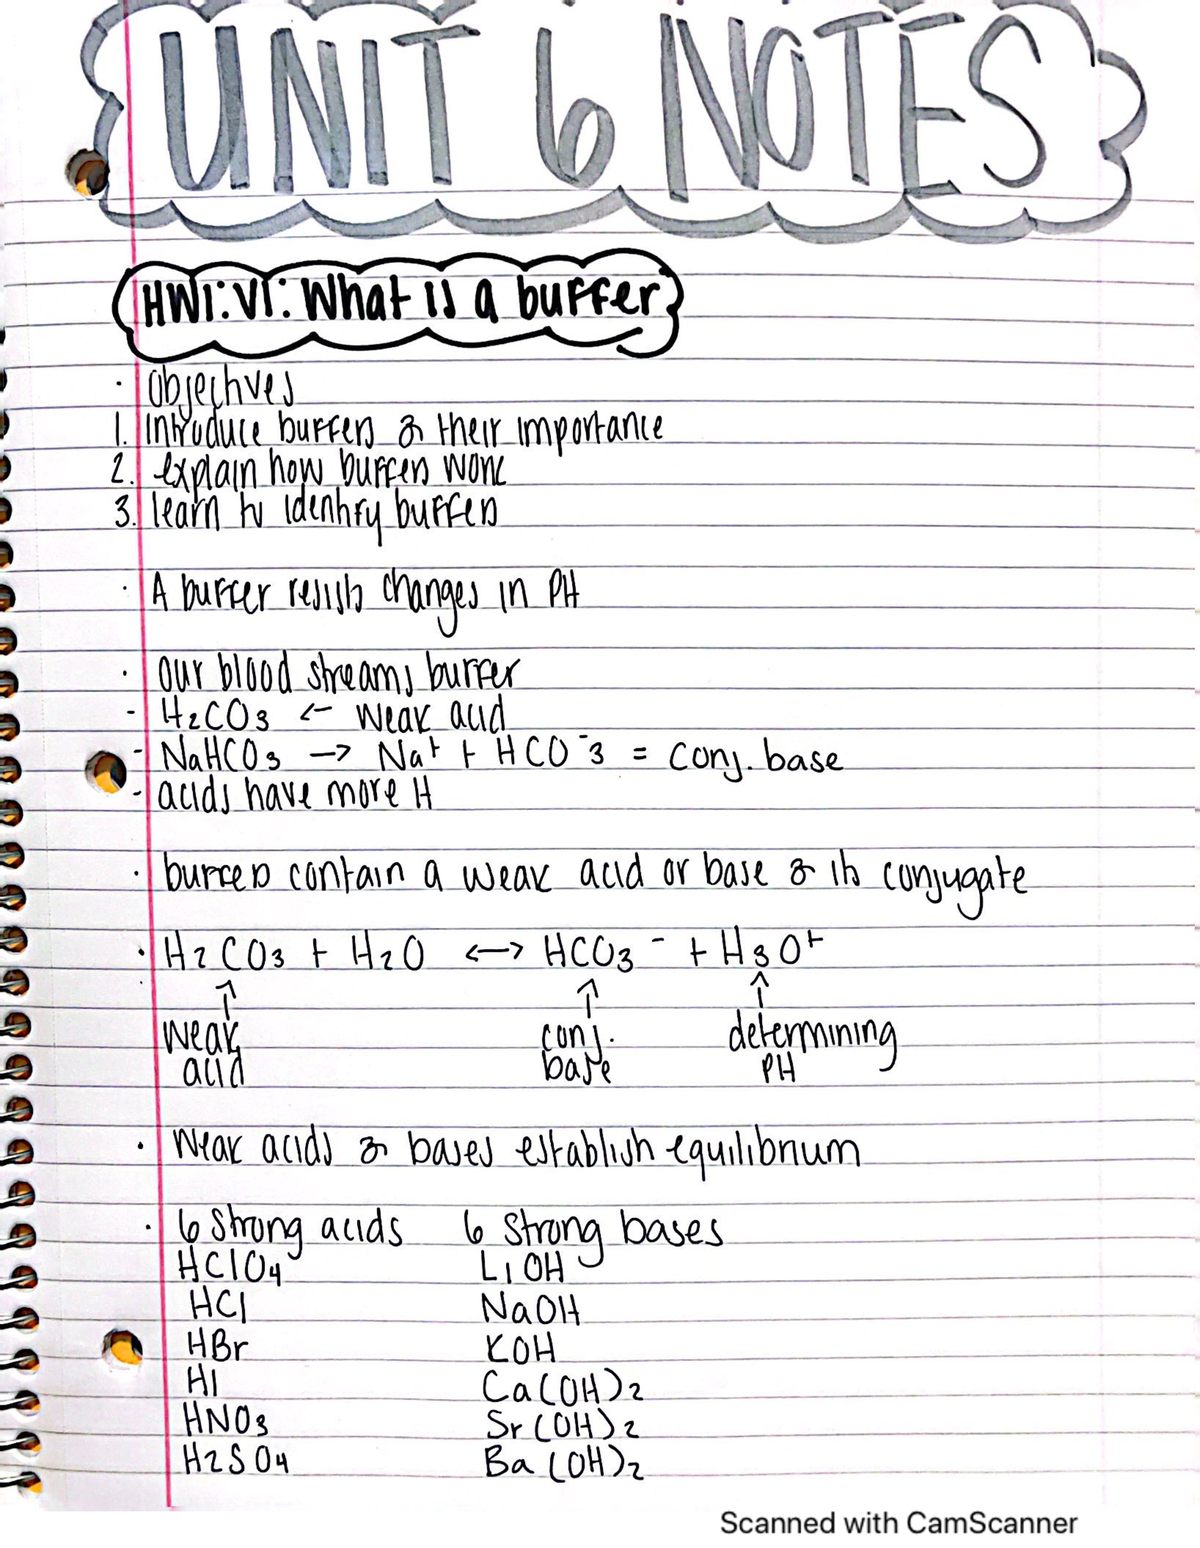 UNIT 6 NOTES
HW1: V1: What is a buffer
· objectives
1. introduce buffers & their importance
2. explain how buffers work
3. learn to identify buffers
· A buffer resists changes in PH
· our blood streams buffer
- H2CO3 ← weak acid
- NaHCO3 → Na+ + HCO-3 = conj. base
- acids have more H
· buffers contain a weak acid or base & its conjugate
· H2CO3 + H2O ←→ HCO3- + H3O+
↑ ↑ ↑
weak conj. determining
acid base PH
· weak acids & bases establish equilibrium
· 6 strong acids 6 strong bases
HClO4 LiOH
HCl NaOH
HBr KOH
HI Ca(OH)2
HNO3 Sr(OH)2
H2SO4 Ba(OH)2
Scanned with CamScanner